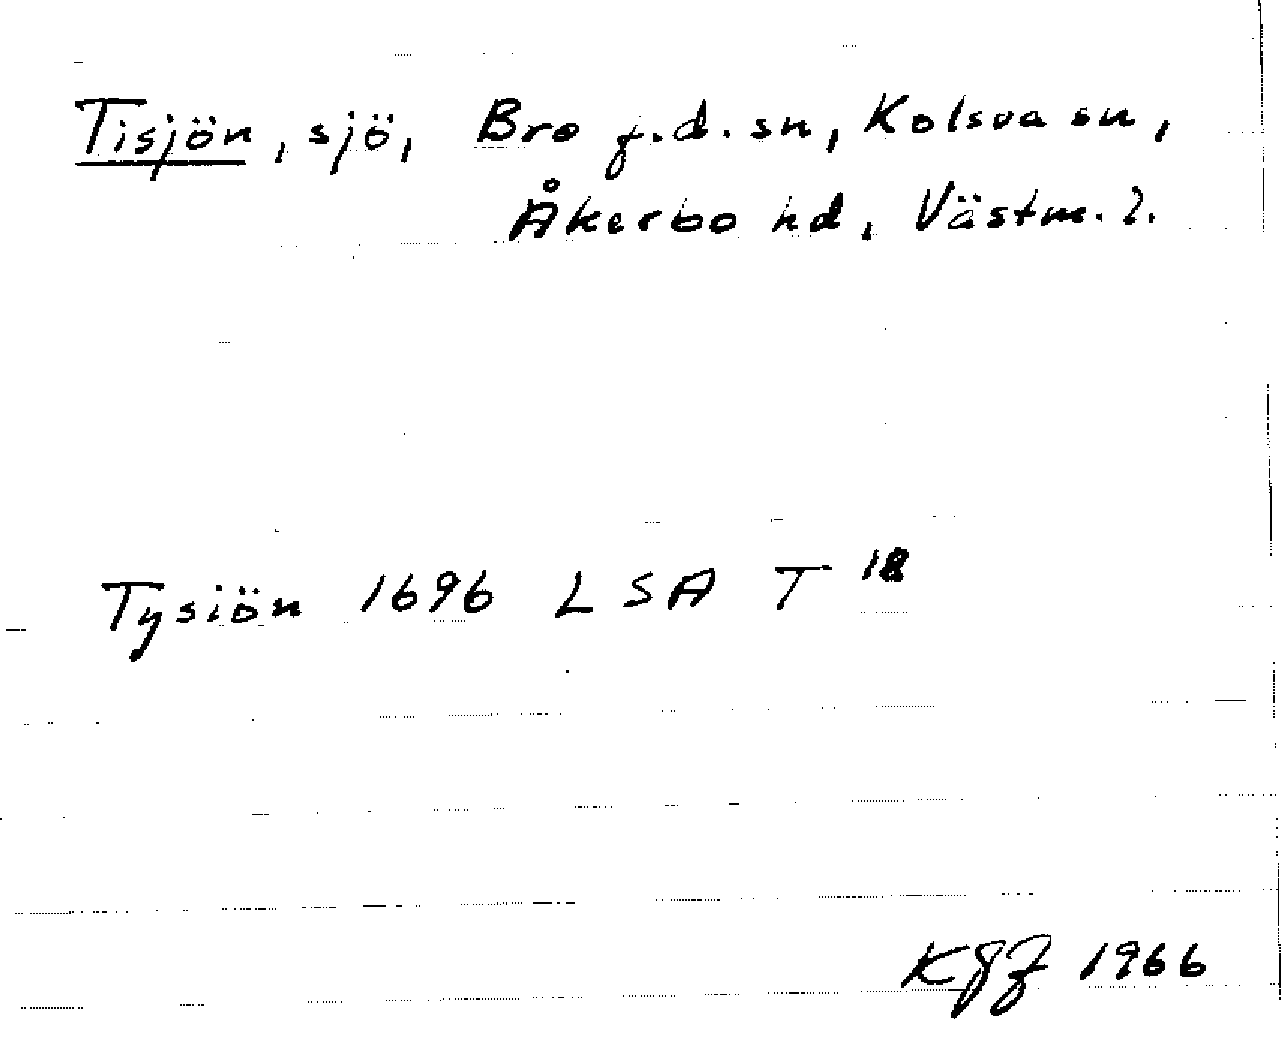 Tisjön, sjö, Bro f.d. sn, Kolsva sn,
Åkerbo hd, Västm. l.
Tysiön 1696 LSA T 18
KGF 1966